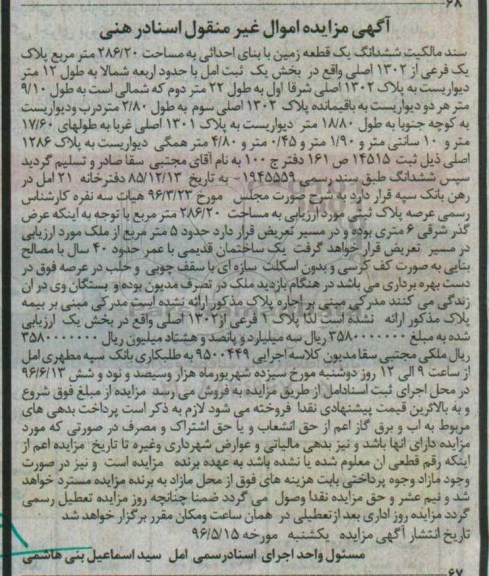 ۶۸
آگهی مزایده اموال غیر منقول اسنادرهنی
سند مالکیت ششدانگ یک قطعه زمین با بنای احداثی به مساحت ۲۸۶/۲۰ متر مربع پلاک
یک فرعی از ۱۳۰۲ اصلی واقع در بخش یک ثبت امل با حدود اربعه شمالا به طول ۱۲ متر
دیواریست به پلاک ۱۳۰۲ اصلی شرقا اول به طول ۲۲ متر دوم که شمالی است به طول ۹/۱۰
متر هر دو دیواریست به باقیمانده پلاک ۱۳۰۲ اصلی سوم به طول ۲/۸۰ متردرب ودیواریست
به کوچه جنوبا به طول ۱۸/۸۰ متر دیواریست به پلاک ۱۳۰۱ اصلی غربا به طولهای ۱۷/۶۰
متر و ۱۰ سانتی متر و ۱/۹۰ متر و ۰/۴۵ متر و ۴/۸۰ متر همگی دیواریست به پلاک ۱۲۸۶
اصلی ذیل ثبت ۱۴۵۱۵ ص ۱۶۱ دفتر ج ۱۰۰ به نام آقای مجتبی سقا صادر و تسلیم گردید
سپس ششدانگ طبق سند رسمی ۱۹۴۵۵۵۹- به تاریخ ۸۵/۱۲/۱۳ دفترخانه ۲۱ امل در
رهن بانک سپه قرار دارد به شرح صورت مجلس مورخ ۹۶/۳/۲۳ هیات سه نفره کارشناس
رسمی عرصه پلاک ثبتی مورد ارزیابی به مساحت ۲۸۶/۲۰ متر مربع با توجه به اینکه عرض
گذر شرقی ۶ متری بوده و در مسیر تعریض قرار دارد حدود ۵ متر مربع از ملک مورد ارزیابی
در مسیر تعریض قرار خواهد گرفت یک ساختمان قدیمی با عمر حدود ۴۰ سال با مصالح
بنایی به صورت کف کرسی و بدون اسکلت سازه ای با سقف چوبی و حلب در عرصه فوق در
دست بهره برداری می باشد در هنگام بازدید ملک در تصرف مدیون بوده و بستگان وی در ان
زندگی می کنند مدرکی مبنی بر اجاره پلاک مذکور ارائه نشده است مدرکی مبنی بر بیمه
پلاک مذکور ارائه نشده است لذا پلاک ۱ فرعی از ۱۳۰۲ اصلی واقع در بخش یک ارزیابی
شده به مبلغ ۳۵۸۰۰۰۰۰۰۰ ریال سه میلیارد و پانصد و هشتاد میلیون ریال ۳۵۸۰۰۰۰۰۰۰
ریال ملکی مجتبی سقا مدیون کلاسه اجرایی ۹۵۰۰۴۴۹ به طلبکاری بانک سپه مطهری امل
از ساعت ۹ الی ۱۲ روز دوشنبه مورخ سیزده شهریورماه هزار وسیصد و نود و شش ۹۶/۶/۱۳
در محل اجرای ثبت اسنادامل از طریق مزایده به فروش می رسد مزایده از مبلغ فوق شروع
و به بالاترین قیمت پیشنهادی نقدا فروخته می شود لازم به ذکر است پرداخت بدهی های
مربوط به آب و برق گاز اعم از حق انشعاب و یا حق اشتراک و مصرف در صورتی که مورد
مزایده دارای انها باشد و نیز بدهی مالیاتی و عوارض شهرداری وغیره تا تاریخ مزایده اعم از
اینکه رقم قطعی ان معلوم شده یا نشده باشد به عهده برنده مزایده است و نیز در صورت
وجود مازاد وجوه پرداختی بابت هزینه های فوق از محل مازاد به برنده مزایده مسترد خواهد
شد و نیم عشر و حق مزایده نقدا وصول می گردد ضمنا چنانچه روز مزایده تعطیل رسمی
گردد مزایده روز اداری بعد ازتعطیلی در همان ساعت ومکان مقرر برگزار خواهد شد
تاریخ انتشار آگهی مزایده یکشنبه مورخه ۹۶/۵/۱۵
مسئول واحد اجرای اسنادرسمی امل سید اسماعیل بنی هاشمی
۶۷